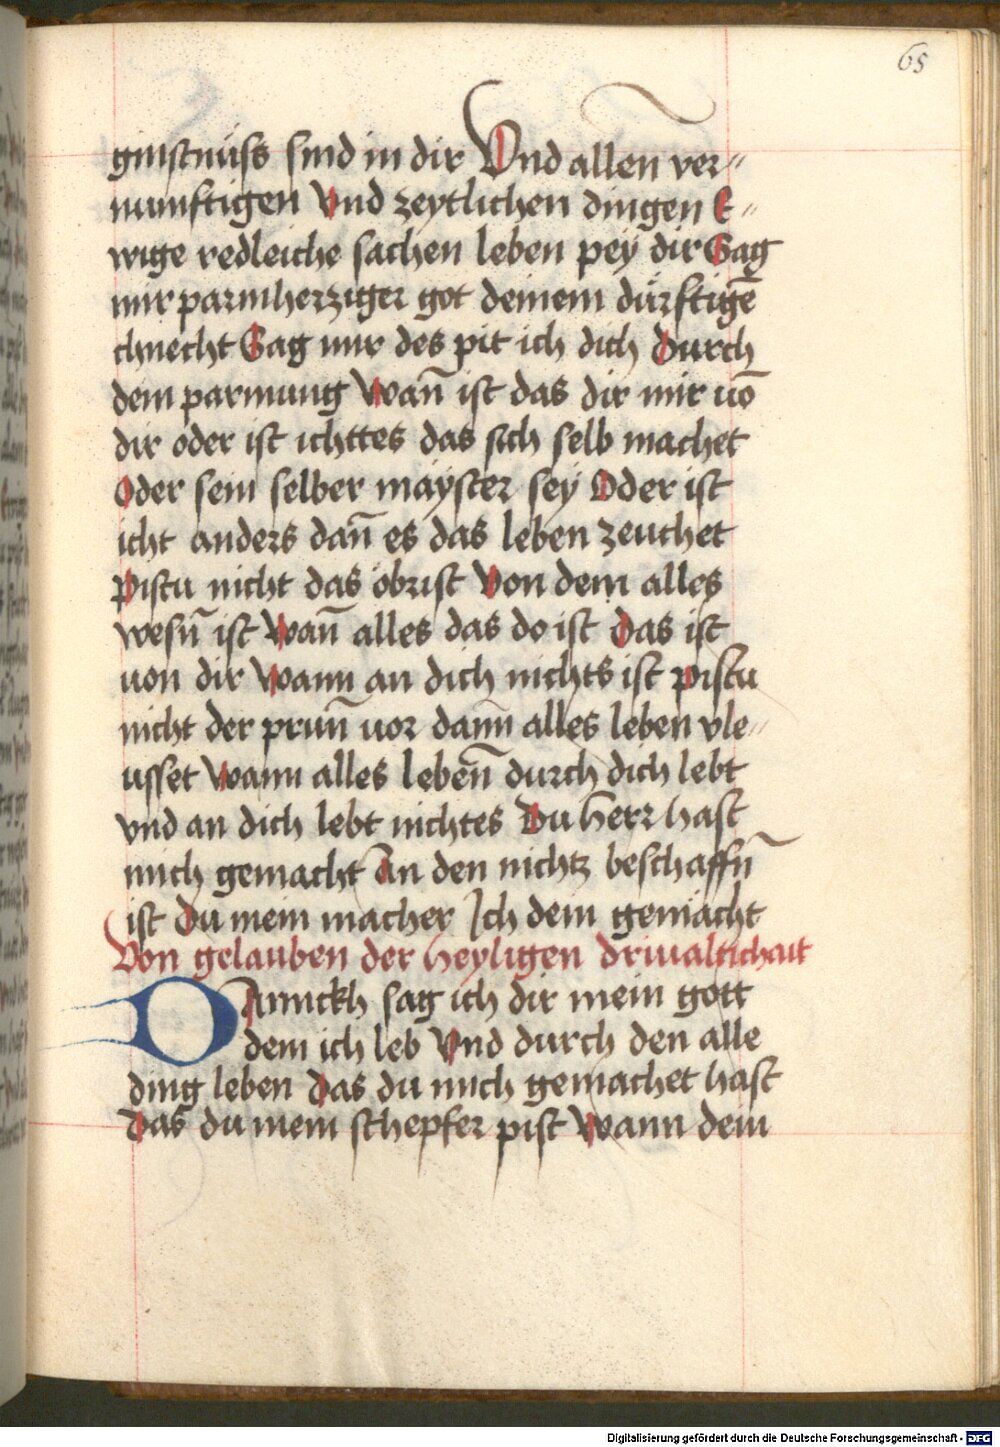 65
gnustnüss sind in dir Vnd allen ver〃
nunftigen vnd zeytlichen dingen E〃
wige redleiche sachen leben pey dir Sag
mir parmherziger got deinem dürftigē
chnecht Sag mir des pit ich dich Durch
dein parmung Wan̄ ist das dir mir uō
dir oder ist ichttes das sich selb machet
Oder sein selber mäyster sey Oder ist
icht anders dan̄ es das leben zeuchet
Pistu nicht das öbrist Von dem alles
wesn̄ ist Wan̄ alles das do ist Das ist
uon dir Wann an dich nichts ist Pistu
nicht der prun̄ uor dann̄ alles leben vle〃
usset Wann alles leben̄ durch dich lebt
vnd an dich lebt nichtes Du herr hast
mich gemacht An den nichtz beschaffn̄
ist Du mein macher Ich dein gemächt
Von gelauben der heyligen driualtichait
Darnickh sag ich dir mein gott
dem ich leb Vnd durch den alle
ding leben Das du mich gemachet hast
Das du mein schepfer pist Wann dein
Digitalisierung gefördert durch die Deutsche Forschungsgemeinschaft - DFG